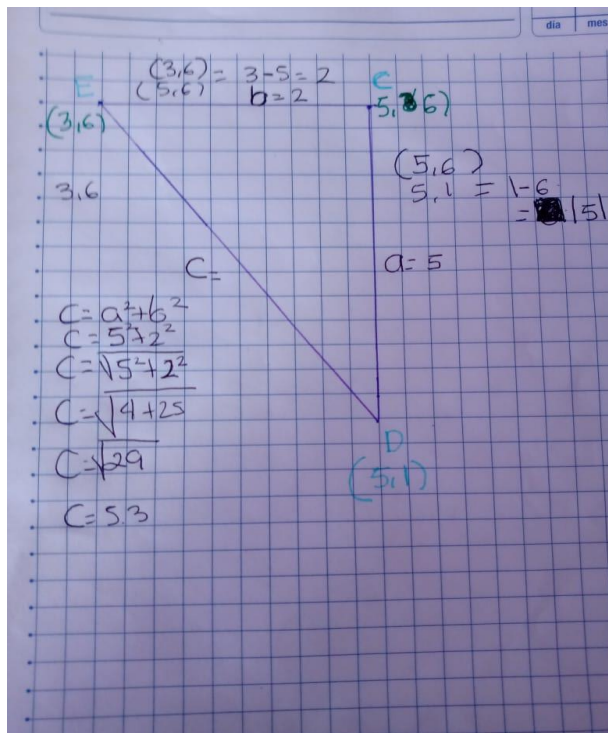 día mes
(3,6) = 3-5=2
(5,6) b=2
E
(3,6)
C
5, 6)
3,6
(5,6)
5,1 = 1-6
= |5|
C=
a= 5
C= a²+b²
C= 5²+2²
C=√5²+2²
C=√4+25
C=√29
C= 5.3
D
(5,1)